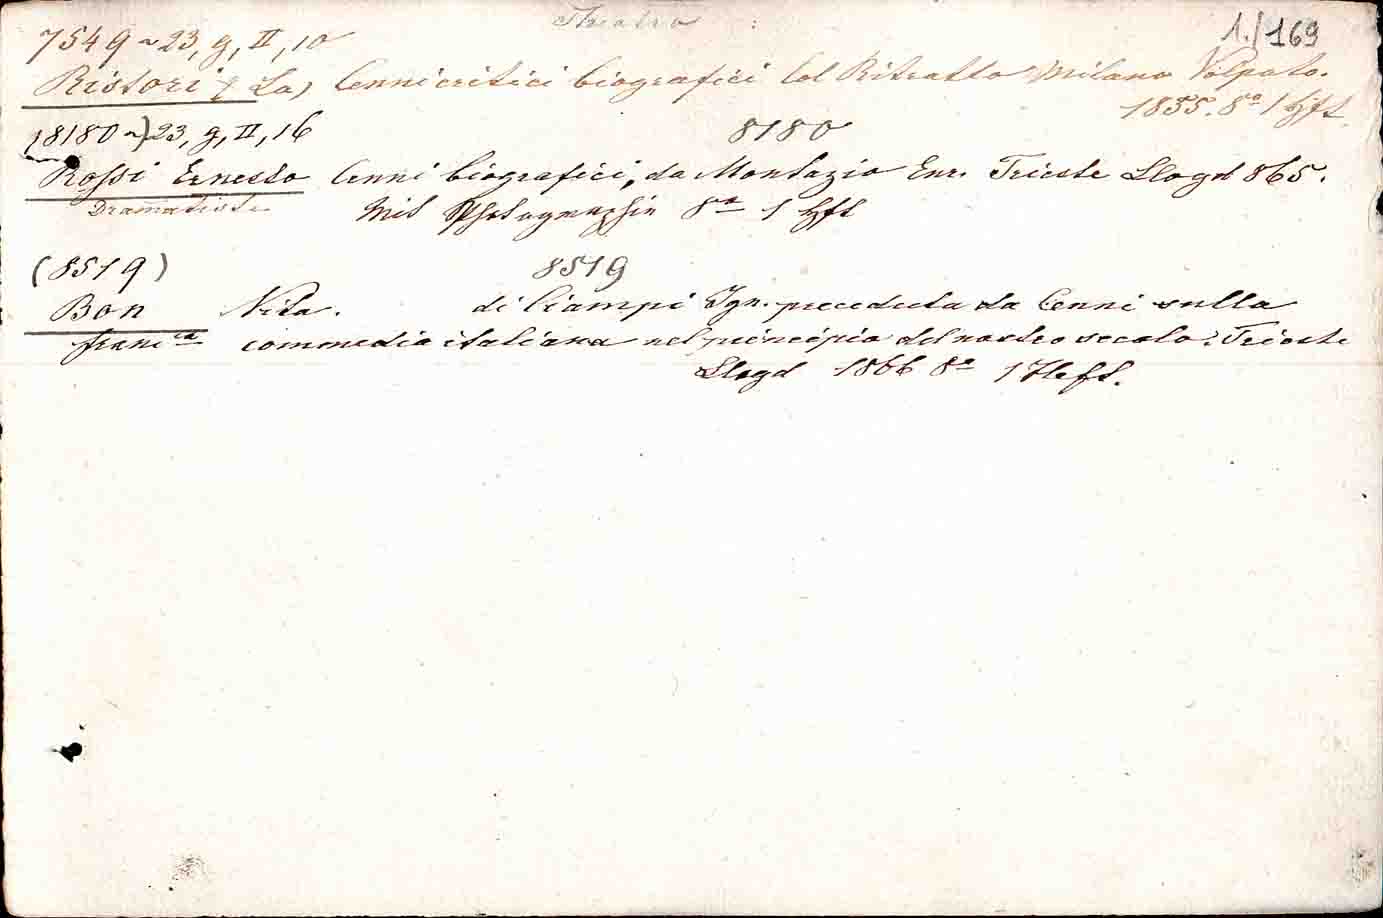 Theatro
1./169
7549 ~ 23, g, II, 10
Ristori (La) Cenni critici biografici Col Ritratto Milano Volpato.
1855. 8° 1 Hft.
(8180 ~) 23, g, II, 16 8180
Rossi Ernesto Cenni biografici, da Montazio Enr. Trieste Lloyd 865.
Dramatiste Mit Photographie 8° 1 Hft
(8519) 8519
Bon Vita. di Ciampi Ign. preceduta da Cenni sulla
commedia italiana nel principio del nostro secolo. Trieste
Lloyd 1866 8° 1 Heft.